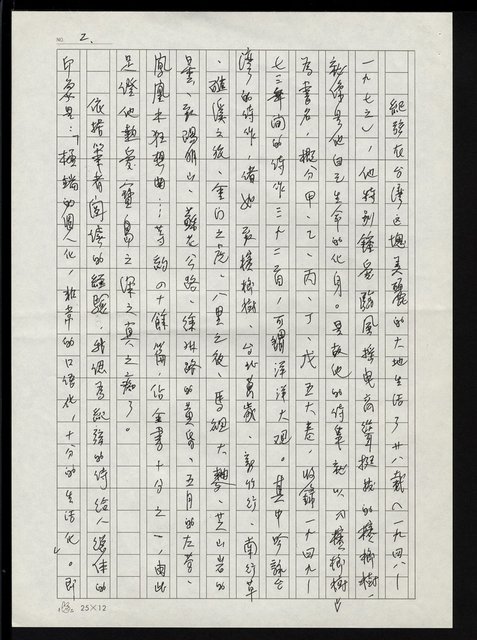 NO. 2.
紀弦在台灣這塊美麗的大地生活了廿八載（一九四八－
一九七六），他特別鍾愛臨風搖曳高聳挺拔的檳榔樹，
是他自己生命的化身。是故他的詩集就以「檳榔樹」
為書名，概分甲、乙、丙、丁、戊五大卷，收錄一九四九－
七三年間的詩作三二二首，可謂洋洋大觀。其中吟詠台
灣的詩作，諸如致檳榔樹、台北萬歲、新竹行、南行草
、雅溪之旅、金門之虎、八里之夜、馬祖大麯、芝山岩的
、致陽明山、蘇花公路、徐州路的黃昏、五月的左營、
鳳凰木狂想曲…等約四十餘篇，佔全書十分之一，由此
足證他熱愛寶島之深之真之痴了。
依據筆者閱讀的經驗，我認為紀弦的詩給人總体的
印象是：極端的個人化，非常的口語化，十分的生活化。即
25×12